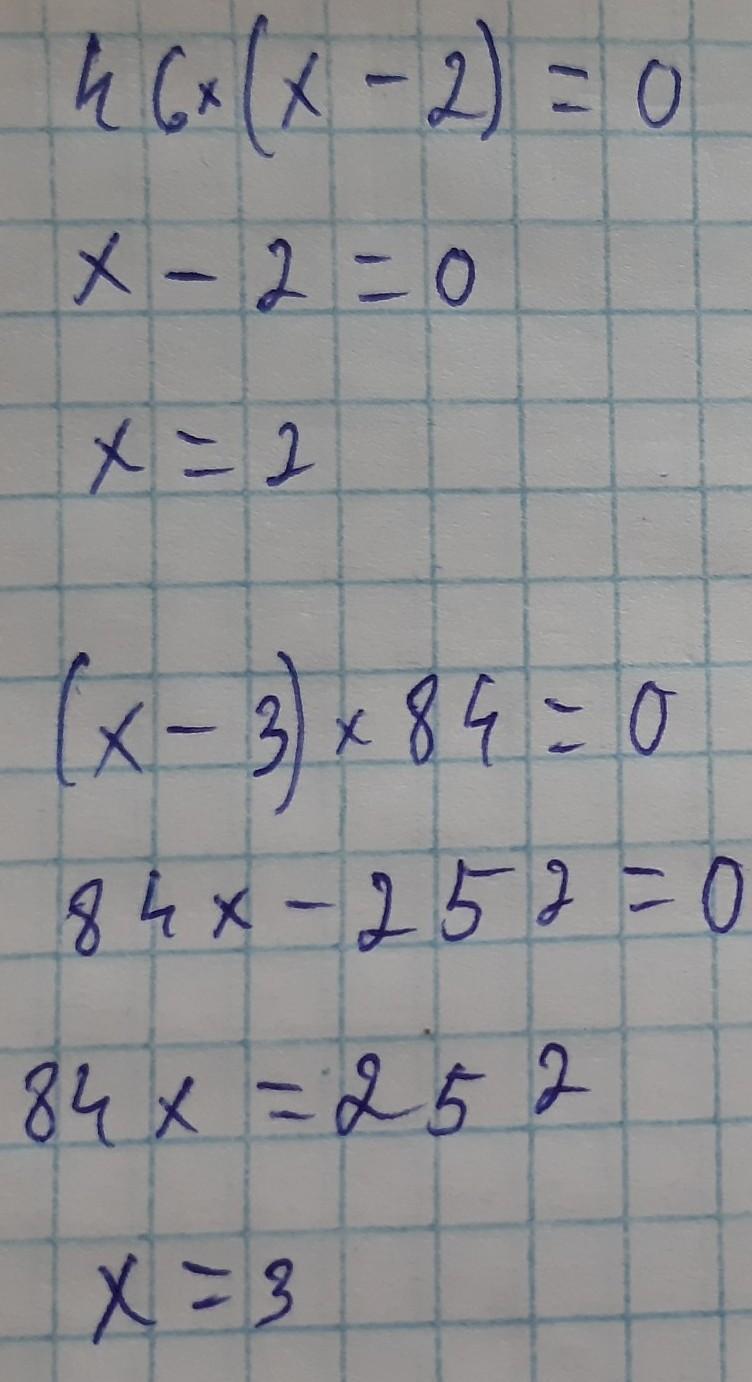 46×(x-2)=0
x-2=0
x=2
(x-3)×84=0
84x-252=0
84x=252
x=3